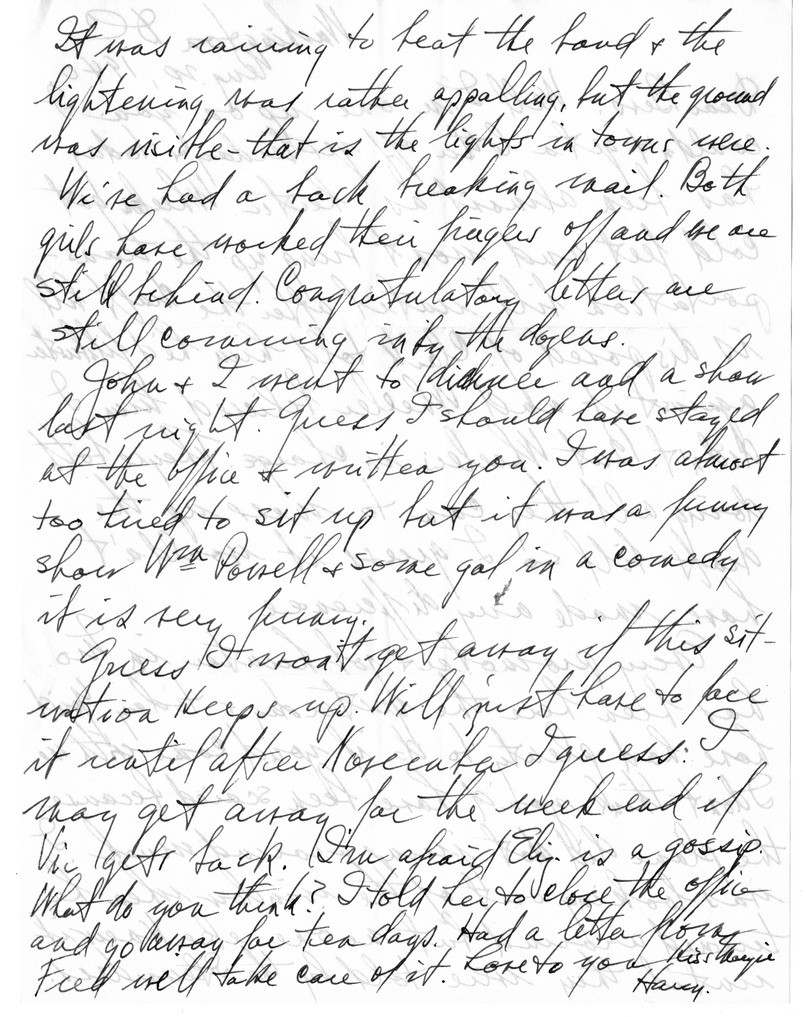 It was raining to beat the band & the
lightening was rather appalling, but the ground
was visible - that is the lights in towns were.
We've had a back breaking mail. Both
girls have worked their fingers off and we are
still behind. Congratulatory letters are
still comming in by the dozens.
John & I went to dinner and a show
last night. Guess I should have stayed
at the office & written you. I was almost
too tired to sit up but it was a funny
show Wm Powell & some gal in a comedy
it is very funny.
Guess I won't get away if this sit-
uation keeps up. Will just have to face
it until after November I guess. I
may get away for the week end if
Vic gets back. I'm afraid Eliz. is a gossip.
What do you think? I told her to close the office
and go away for ten days. Had a letter from
Fred will take care of it. Love to you Kiss Margie
Harry.